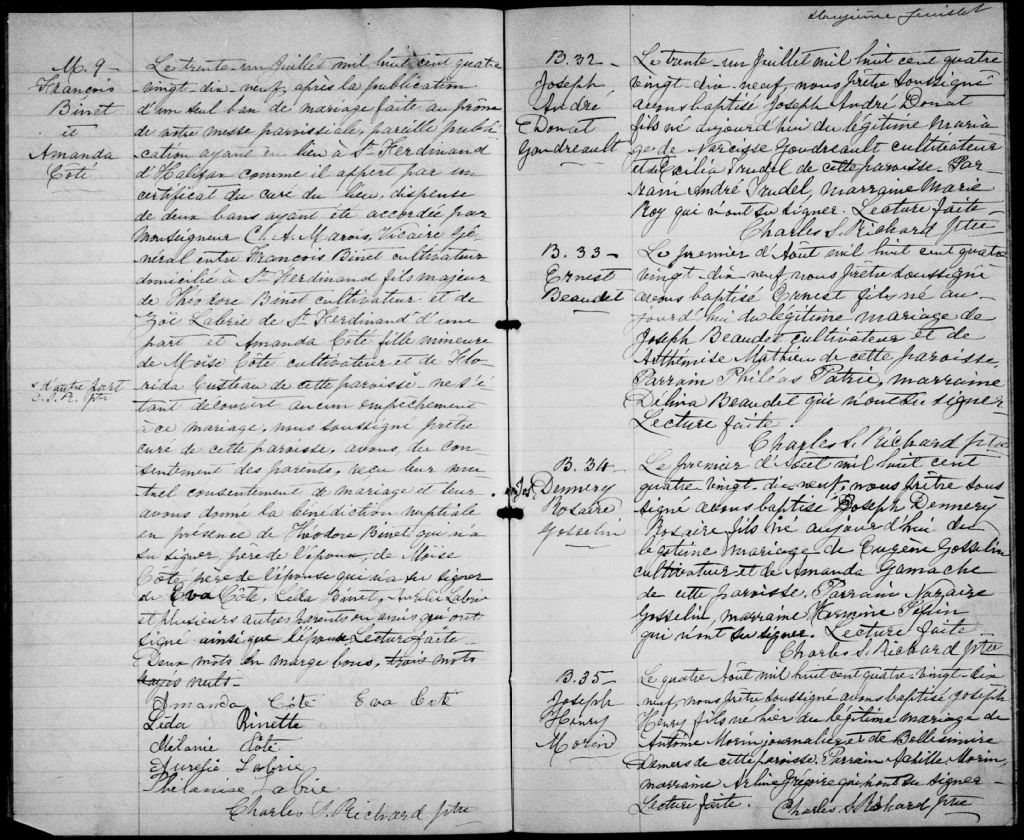 M. 9 -
François
Binet
et
Amanda
Côté
Le trente-un Juillet mil huit cent quatre
vingt-dix-neuf, après la publication
d'un seul ban de mariage faite au prône
de notre messe paroissiale, pareille publi-
cation ayant eu lieu à St Ferdinand
d'Halifax comme il appert par un
certificat du curé du lieu, dispense
de deux bans ayant été accordée par
Monseigneur C. A. Marois, Vicaire Gé-
néral entre François Binet cultivateur
domicilié à St Ferdinand fils majeur
de Théodore Binet cultivateur et de
Zoë Labrie de St Ferdinand d'une
part et Amanda Côté fille mineure
de Moïse Côté cultivateur et de Flo-
rida Custeau de cette paroisse ne s'é-
x d'autre part
C. S. R. ptre
tant découvert aucun empêchement
à ce mariage, nous soussigné prêtre
curé de cette paroisse, avons, du con-
sentement des parents, reçu leur mu-
tuel consentement de mariage et leur
avons donné la bénédiction nuptiale
en présence de Théodore Binet qui n'a
su signer, père de l'époux, de Moïse
Côté, père de l'épouse qui n'a su signer
de Eva Côté, Léda Binet, Aurélie Labrie
et plusieurs autres parents ou amis qui ont
signé ainsi que l'épouse Lecture faite
Deux mots en marge bons, trois mots
rayés nuls.
Amanda Côté Eva Coté
Léda Binette
Mélanie Coté
Aurélie Labrie
Labrie
Charles S. Richard ptre
feuillet
B. 32 -
Joseph
André
Donat
Goudreault
Le trente-un Juillet mil huit cent quatre
vingt-dix-neuf, nous prêtre soussigné
avons baptisé Joseph André Donat
fils né aujourd'hui du légitime maria
ge de Narcisse Goudreault cultivateur
et de Cécilia Trudel de cette paroisse. Par-
rain André Trudel, marraine Marie
Roy qui n'ont su signer. Lecture faite -
Charles S. Richard ptre
B. 33 -
Ernest
Beaudet
Le premier d'Août mil huit cent quatre
vingt-dix-neuf, nous prêtre soussigné
avons baptisé Ernest fils né au-
jourd'hui du légitime mariage de
Joseph Beaudet cultivateur et de
Arthémise Mathieu de cette paroisse.
Parrain Philéas Patrie, marraine
Délina Beaudet qui n'ont su signer
Lecture faite.
Charles S. Richard ptre
B. 34 -
Jos
Dennery
Rosaire
Gosselin
Le premier d'Août mil huit cent
quatre vingt-dix-neuf, nous prêtre sous
signé avons baptisé Joseph Dennery
Rosaire fils né aujourd'hui du
légitime mariage de Eugène Gosselin
cultivateur et de Amanda Gamache
de cette paroisse. Parrain Nazaire
Gosselin, marraine Hermine Pépin
qui n'ont su signer. Lecture faite -
Charles S. Richard ptre
B. 35 -
Joseph
Henry
Morin
Le quatre Août mil huit cent quatre-vingt-dix
neuf, nous prêtre soussigné avons baptisé Joseph
Henry fils né hier du légitime mariage de
Antoine Morin journalier et de Bellesimire
Demers de cette paroisse. Parrain Achille Morin,
marraine Arline Grégoire qui n'ont su signer
Lecture faite. Charles S. Richard ptre